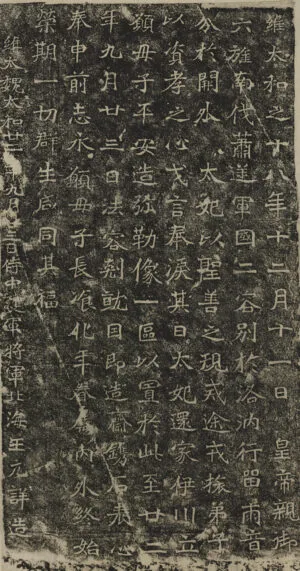 維太和之十八年十二月十一日皇帝親御
六旌南伐蕭逆軍國二容別於洛汭行留兩音
分於闕外太妃以聖善之規戒途戒旅弟子
以資孝之心戈言奉淚其日太妃還家伊川立
願母子平安造弥勒像一區以置於此至廿二
年九月廿三日法容剋就因即造齋鐫石表心
奉申前志永願母子長飡化年眷屬內外終始
榮期一切群生咸同其福
維大魏太和廿二年九月廿三日侍中護軍將軍北海王元詳造